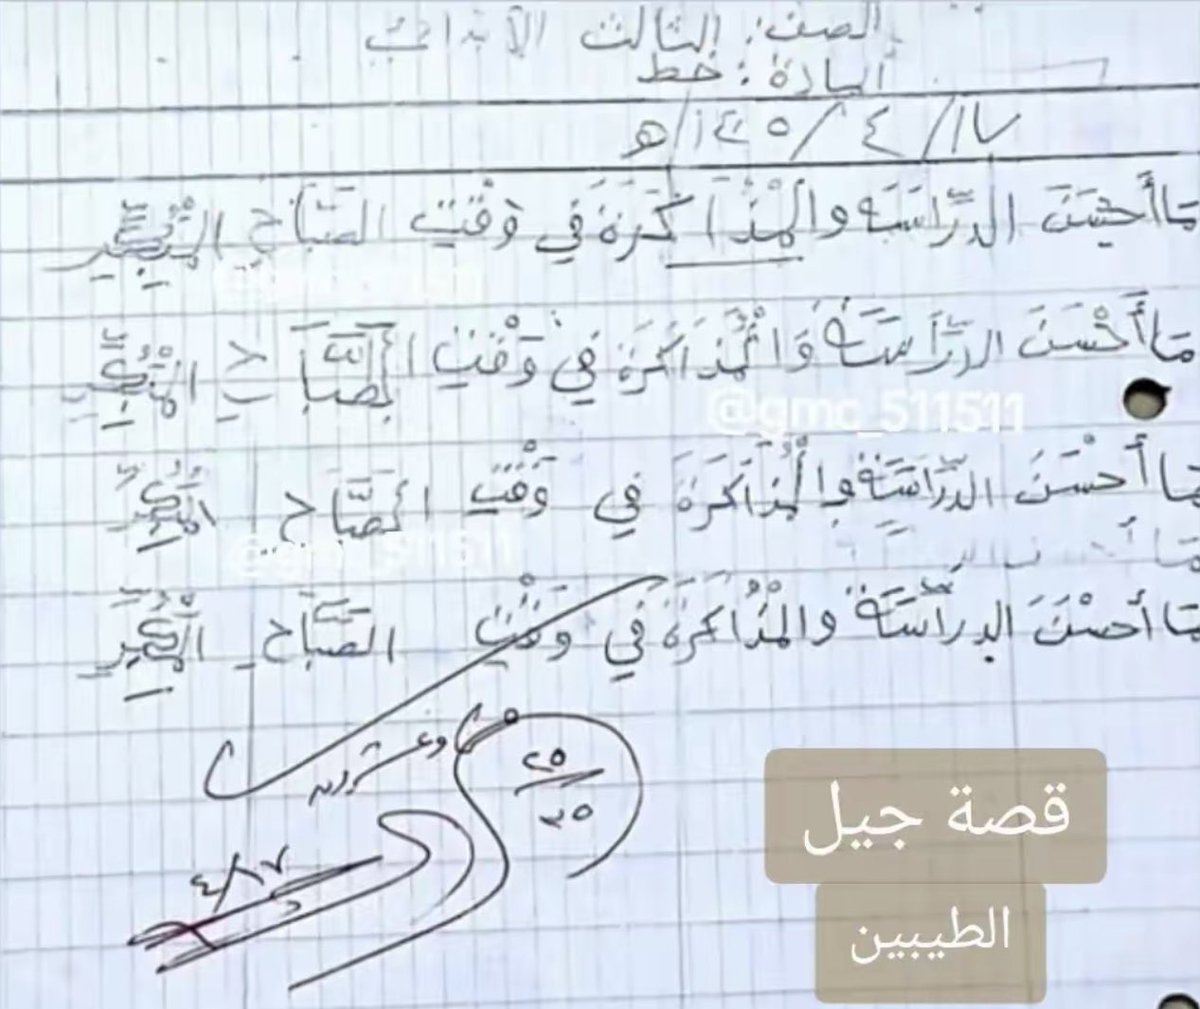 الصف: الثالث الابتدائي
المادة: خط
١٧/٤/١٤٠٥هـ
مَا أَحْسَنَ الدِّرَاسَة والْمُذَاكَرَةَ فِي وَقْتِ الصَّبَاحِ الْمُبَكِّرِ
مَا أَحْسَنَ الدِّرَاسَةَ وَالْمُذَاكَرَةَ فِي وَقْتِ الصَّبَاحِ الْمُبَكِّرِ
@gmc_511511
مَا أَحْسَنَ الدِّرَاسَةَ والْمُذَاكَرَةَ فِي وَقْتِ الصَّبَاحِ الْمُبَكِّرِ
@gmc_511511
مَا أَحْسَنَ الدِرَاسَةَ والْمُذَاكَرَةَ فِي وَقْتِ الصَّبَاحِ الْمُبَكِّرِ
٢٥
٢٥
وعشرون
٤/١٧
قصة جيل
الطيبين